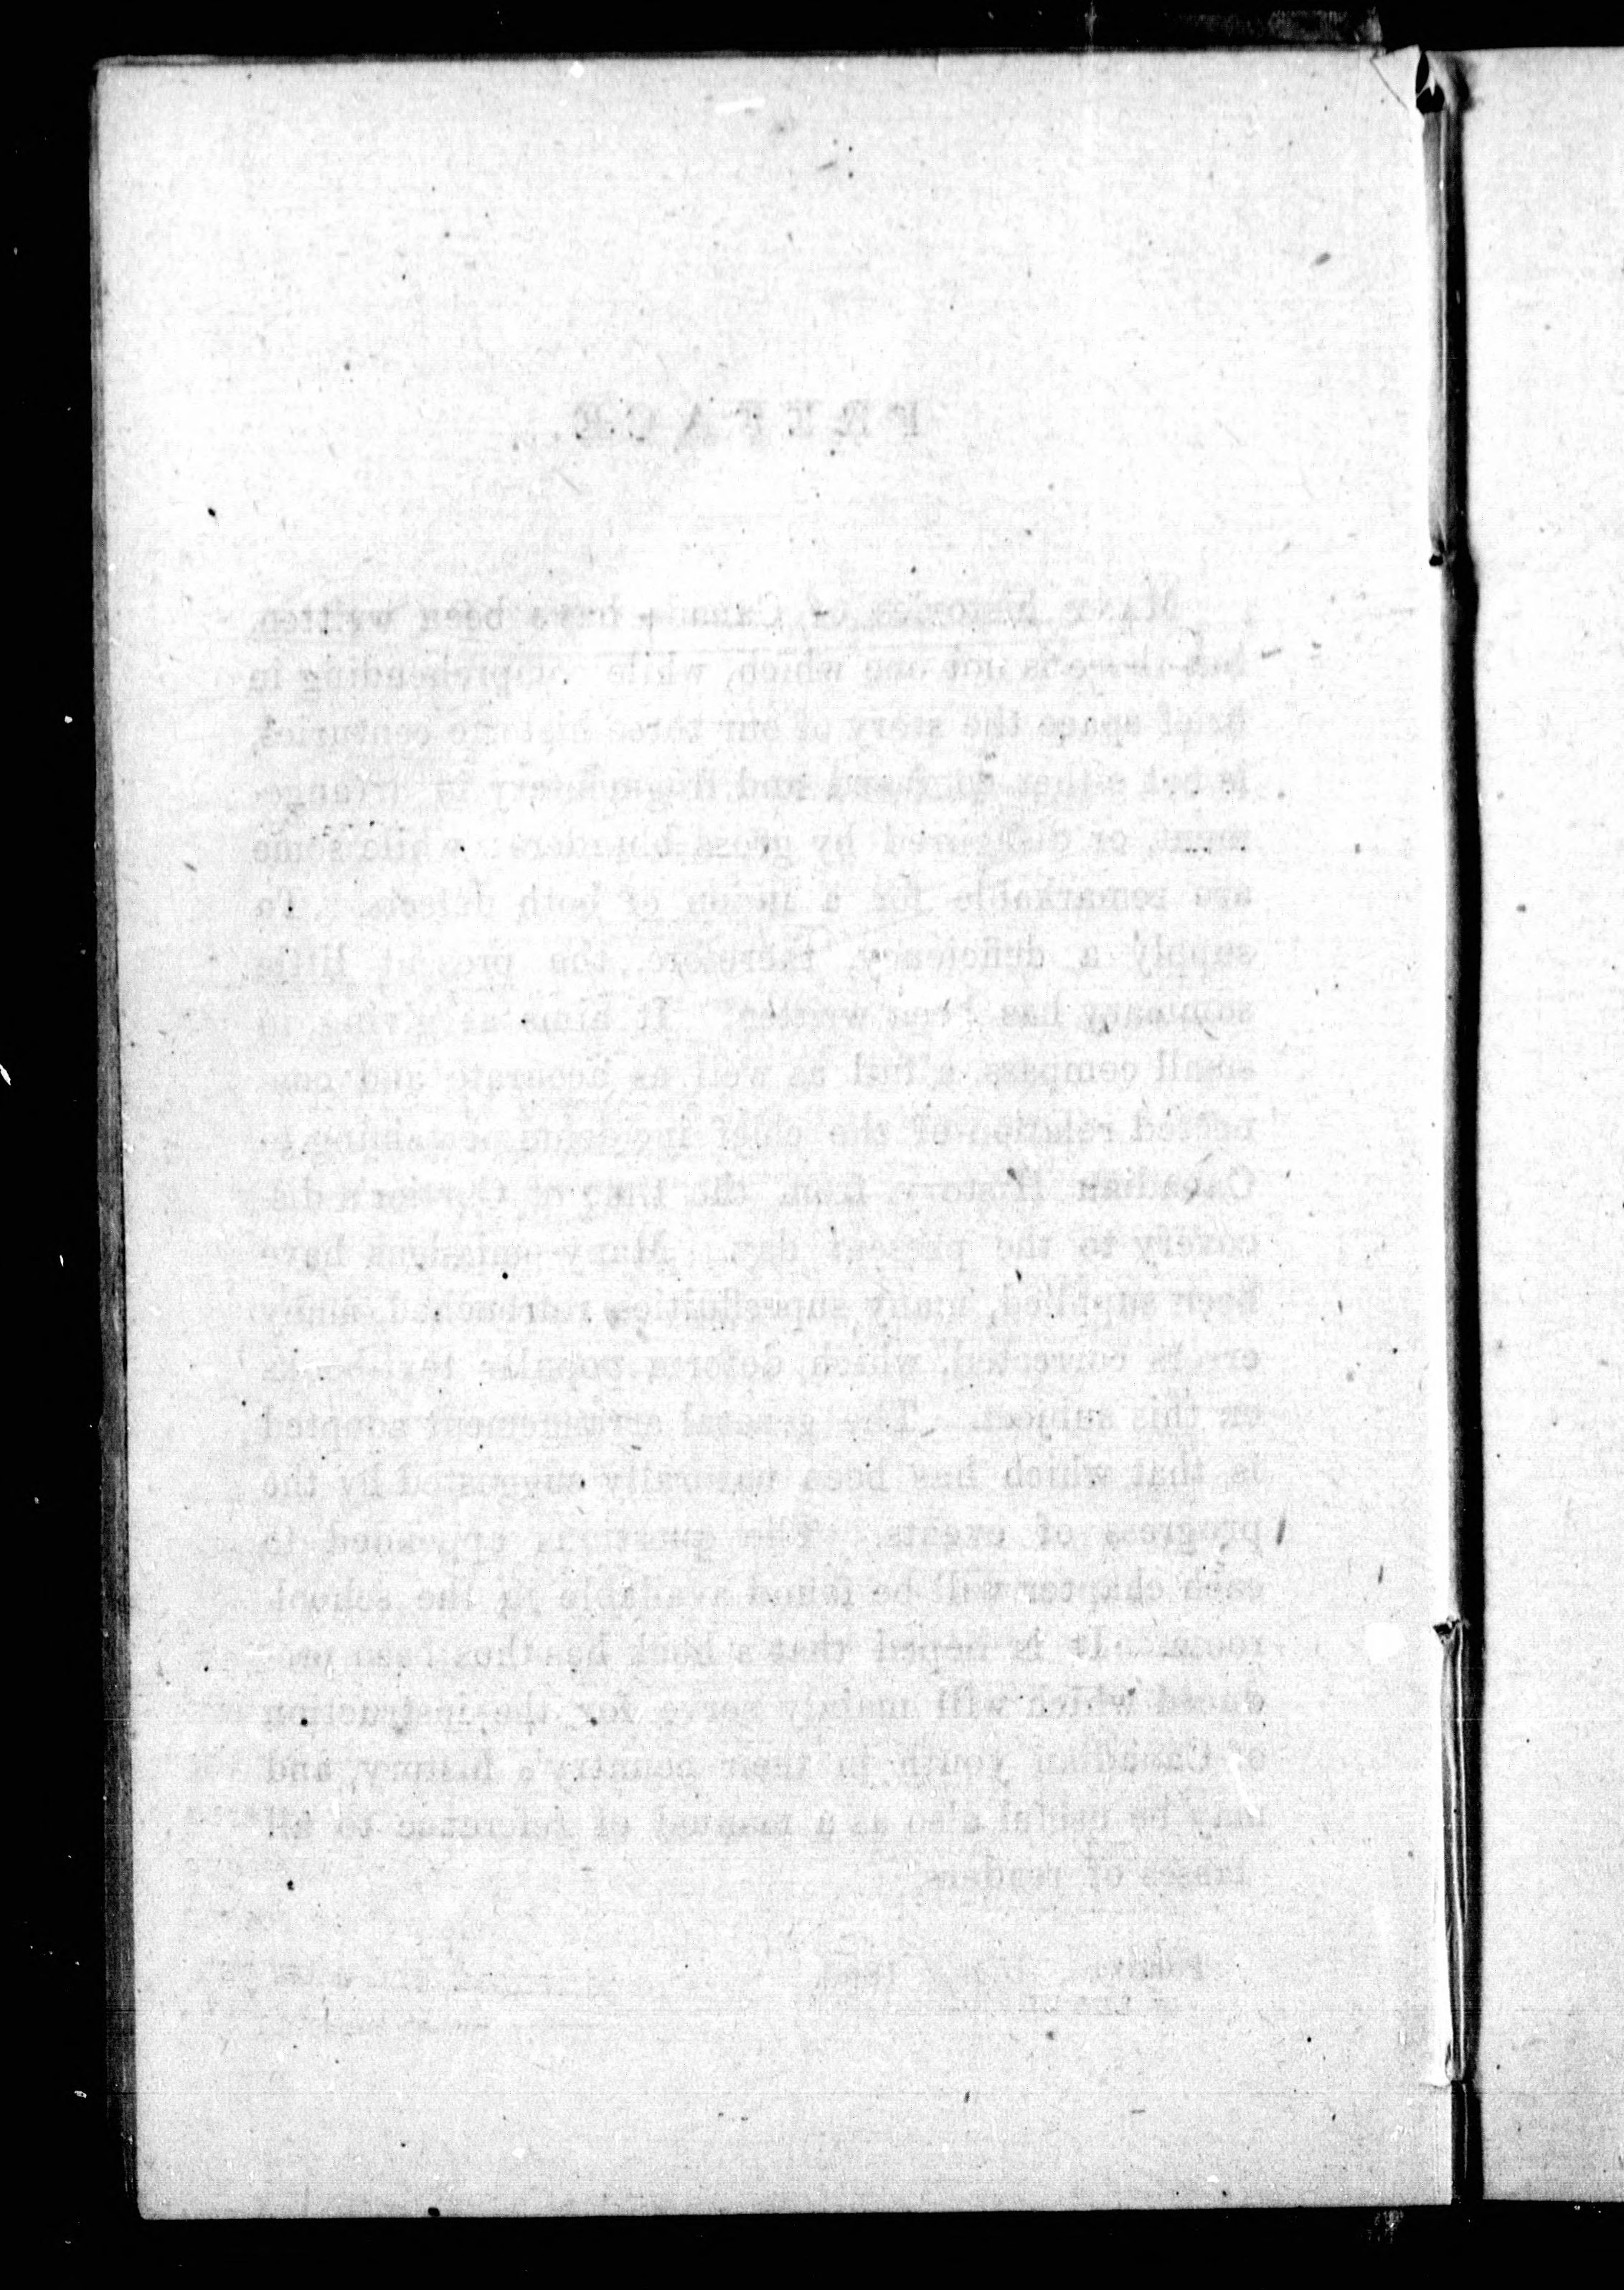 PREFACE.
Many histories of Canada have been written,
but there is not one which, while comprehending in
brief space the story of our three historic centuries,
is not either and fragmentary in arrange-
ment, or disfigured by gross blunders; while some
are remarkable for a union of both defects. To
supply a deficiency, therefore, the present little
summary has been written. It aims at giving in
small compass a full as well as accurate and con-
nected relation of the chief incidents pertaining to
Canadian History from the time of Cartier's dis-
covery to the present day. Many omissions have
been supplied, many superfluities retrenched, many
errors corrected, which deform popular text-books
on this subject. The general arrangement adopted
is that which has been naturally suggested by the
progress of events. The questions appended to
each chapter will be found available in the school-
room. It is hoped that a book has thus been pro-
duced which will mainly serve for the instruction
of Canadian youth in their country's history, and
may be useful also as a manual of reference to all
classes of readers.